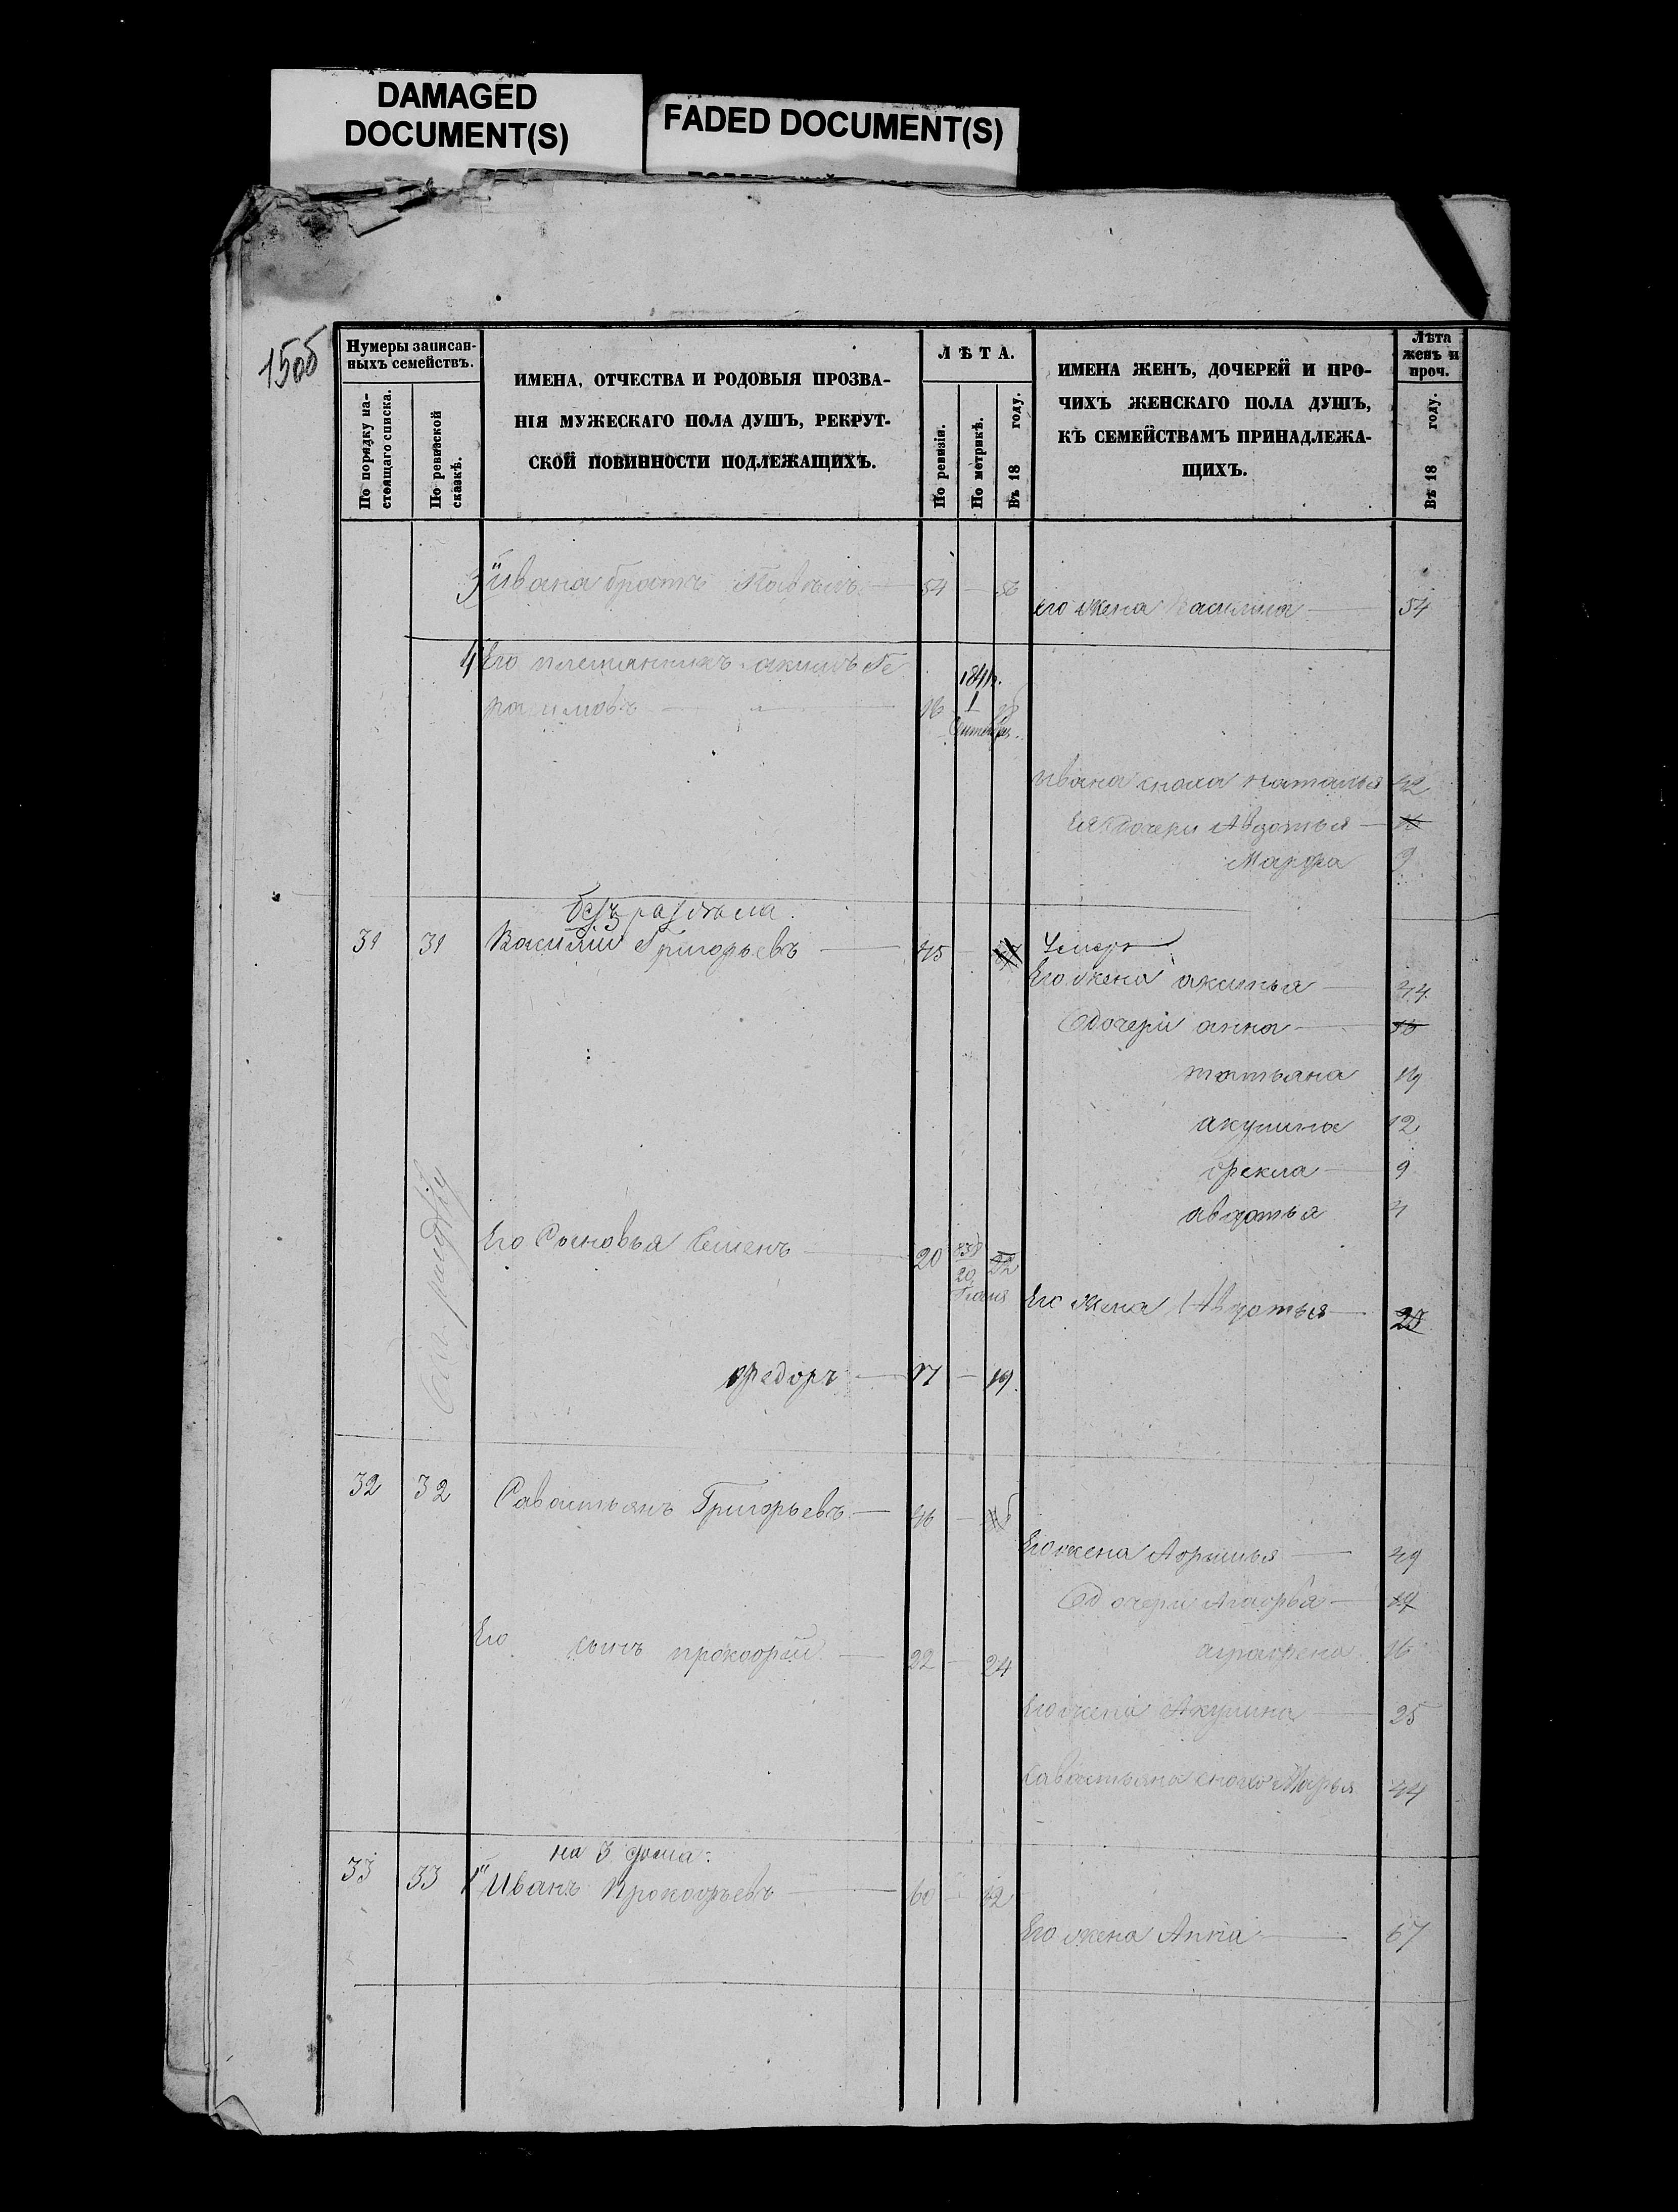 DAMAGED
DOCUMENT(S)
FADED DOCUMENT(S)
150б
Нумеры записан-
ныхъ семействъ.
По порядку на-
стоящаго списка.
По ревизской
сказкѣ.
ИМЕНА, ОТЧЕСТВА И РОДОВЫЯ ПРОЗВА-
НІЯ МУЖЕСКАГО ПОЛА ДУШЪ, РЕКРУТ-
СКОЙ ПОВИННОСТИ ПОДЛЕЖАЩИХЪ.
ЛѢТА.
По ревизіи.
По метрикѣ.
Въ 18 году.
ИМЕНА ЖЕНЪ, ДОЧЕРЕЙ И ПРО-
ЧИХЪ ЖЕНСКАГО ПОЛА ДУШЪ,
КЪ СЕМЕЙСТВАМЪ ПРИНАДЛЕЖА-
ЩИХЪ.
Лѣта
женъ и
проч.
Въ 18 году.
3 Ивана братъ 54 — 56
Его жена Василиса — 54
4 Его племянникъ акимъ Ге
расимовъ — 16 1841г. 1 18
Ивана сноха Наталья 42
Ея дочери Авдотья —
Марфа 9
безъ раздѣла
31 31 Василій Григорьевъ — 45 —
Умеръ
Его жена аксинья — 44
дочери анна — 16
татьяна 14
акулина 12
фекла — 9
авдотья 4
Его Сыновья Семенъ — 20 838 20 22
Его жена Авдотья —
федоръ — 17 — 19
32 32 Савастьянъ Григорьевъ — 46 —
Его жена Афимья — 49
дочери Агафья — 19
Его сынъ прокофій — 22 — 24
аграфена 16
Его жена Акулина — 25
Савастьяна сноха Марья 44
на 3 дома:
33 33 1 Иванъ Прокофьевъ — 60 — 62
Его жена Анна — 67